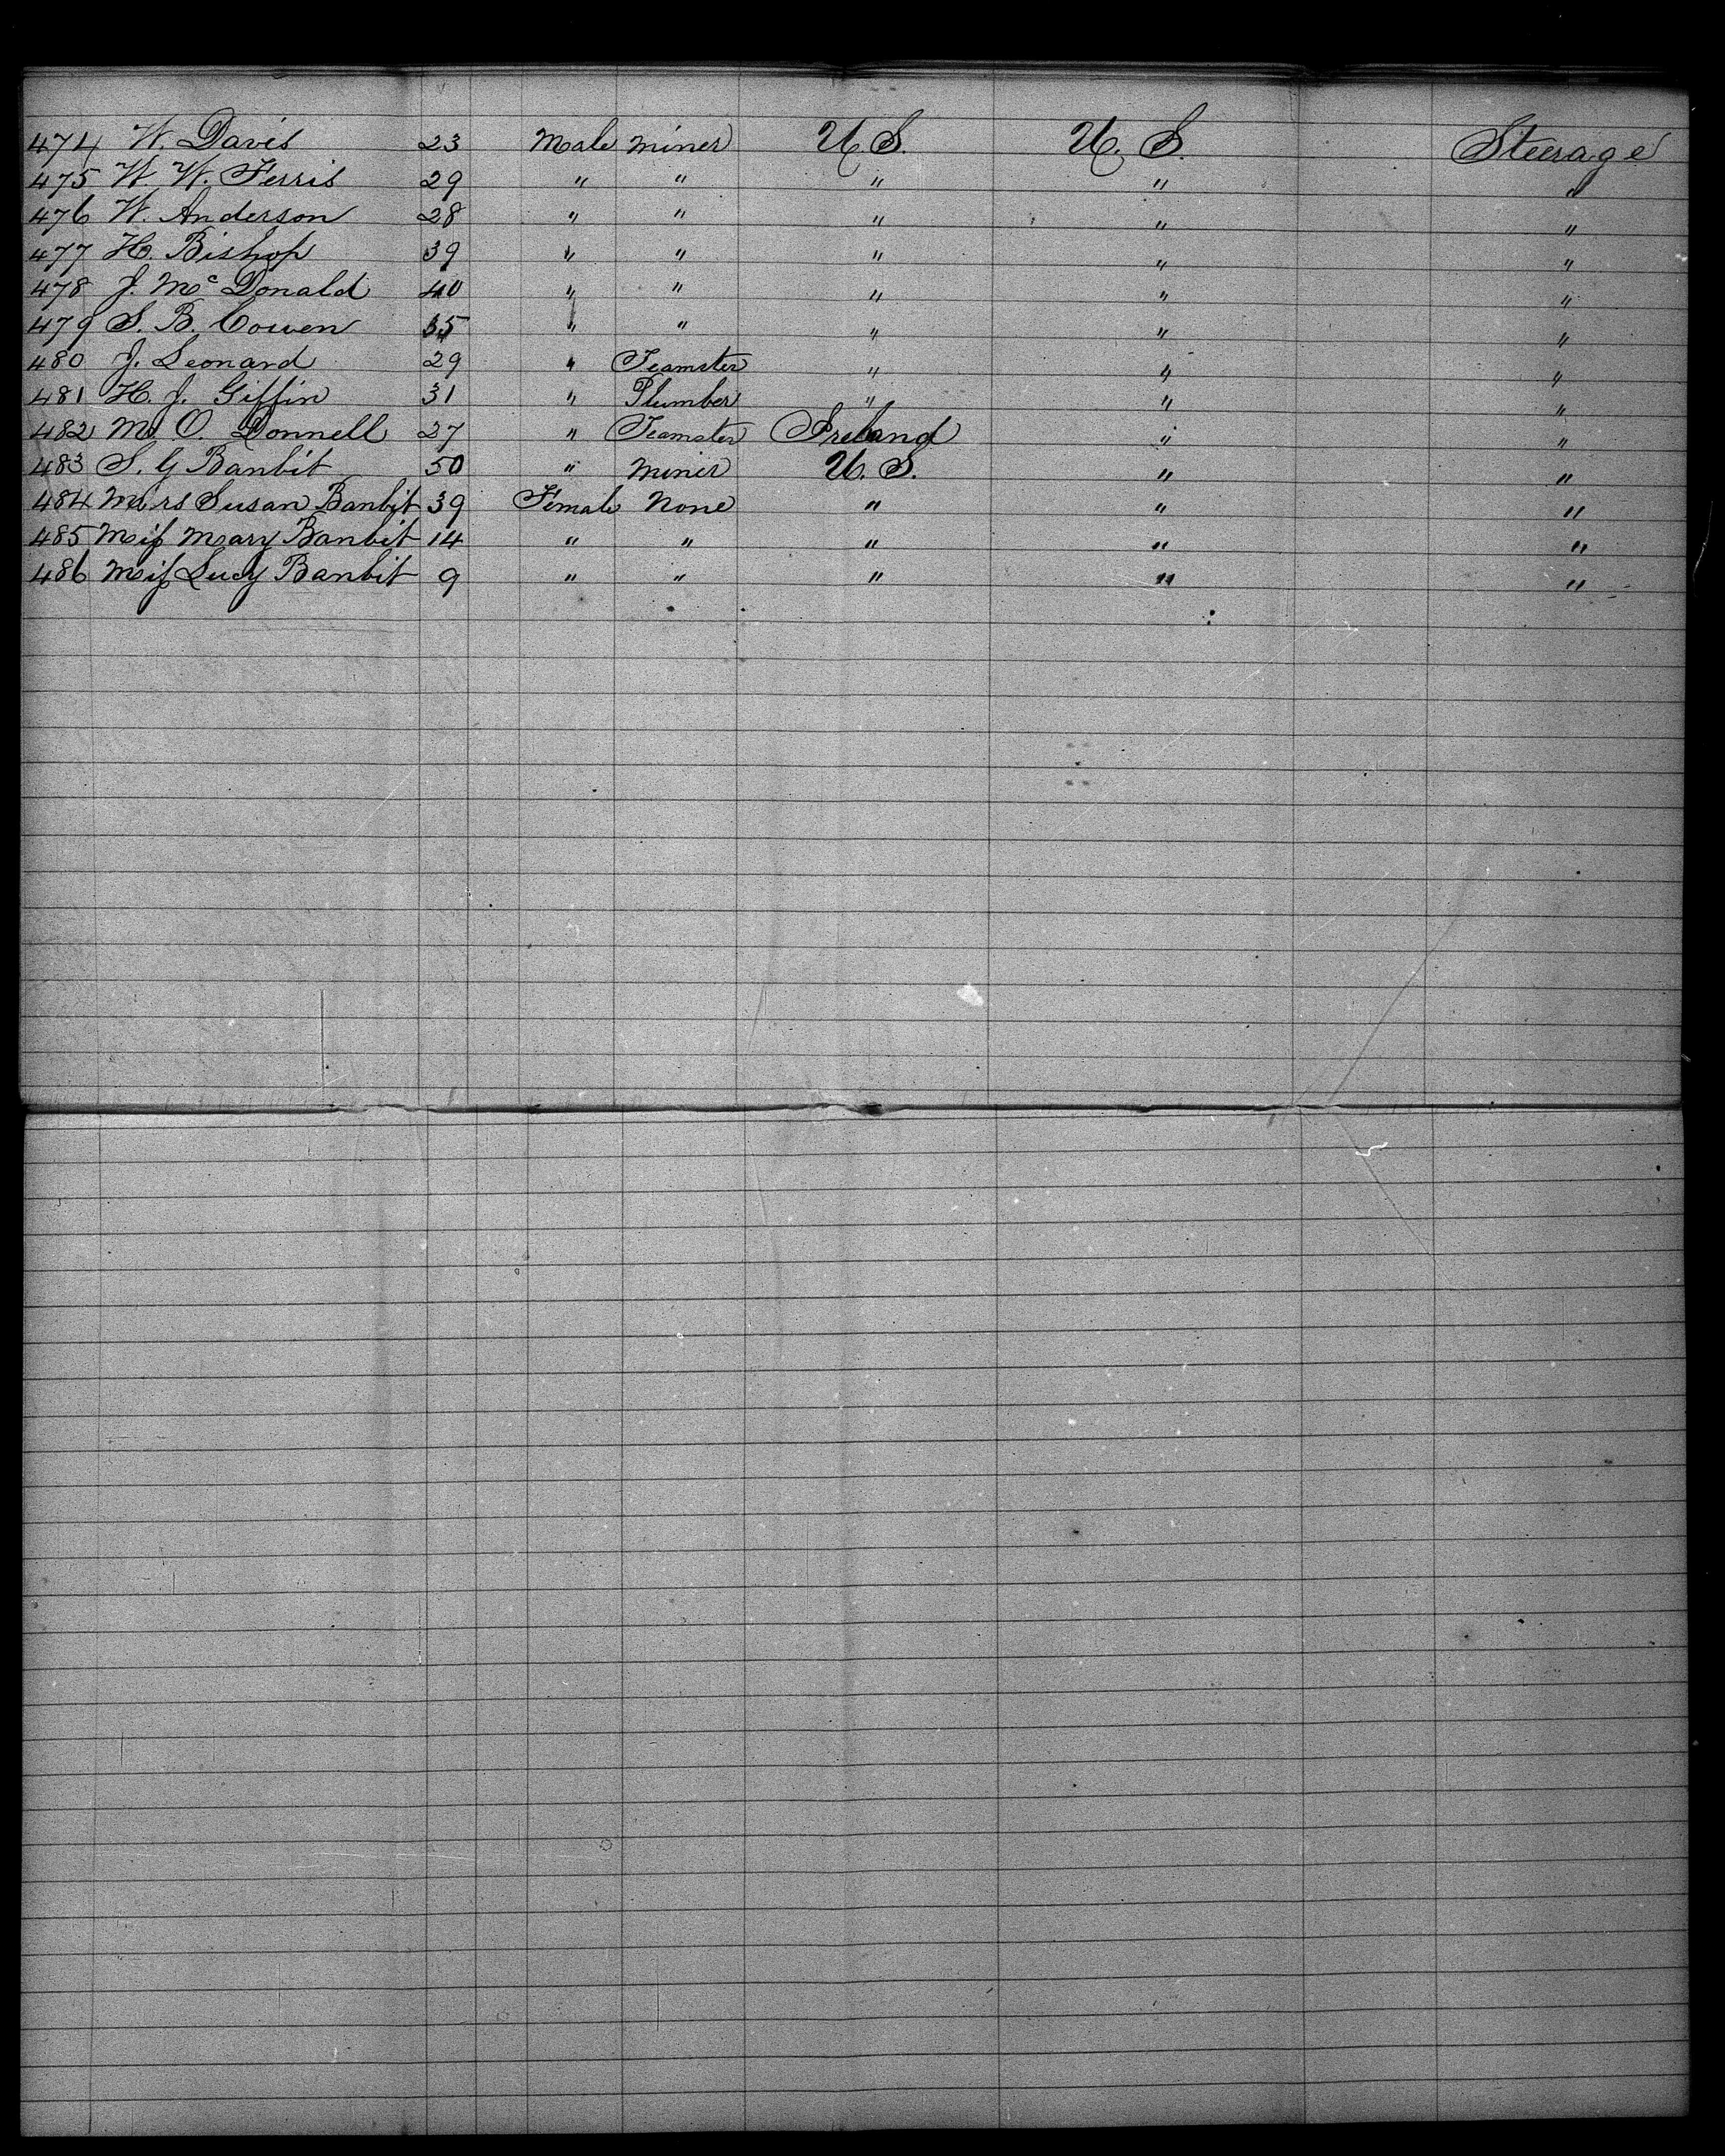 474 W. Davis 23 Male miner U S. U. S. Steerage
475 W. W. Ferris 29 " " " " "
476 W. Anderson 28 " " " " "
477 H. Bishop 39 " " " " "
478 J. Mc Donald 40 " " " " "
479 S. B. Cowen 35 " " " " "
480 J. Leonard 29 " Teamster " " "
481 H. J. Giffin 31 " Plumber " " "
482 M. O. Donnell 27 " Teamster Ireland " "
483 S. G Banbit 50 " miner U. S. " "
484 Mrs Susan Banbit 39 Female None " " "
485 Miss Mary Banbit 14 " " " " "
486 Miss Lucy Banbit 9 " " " " "